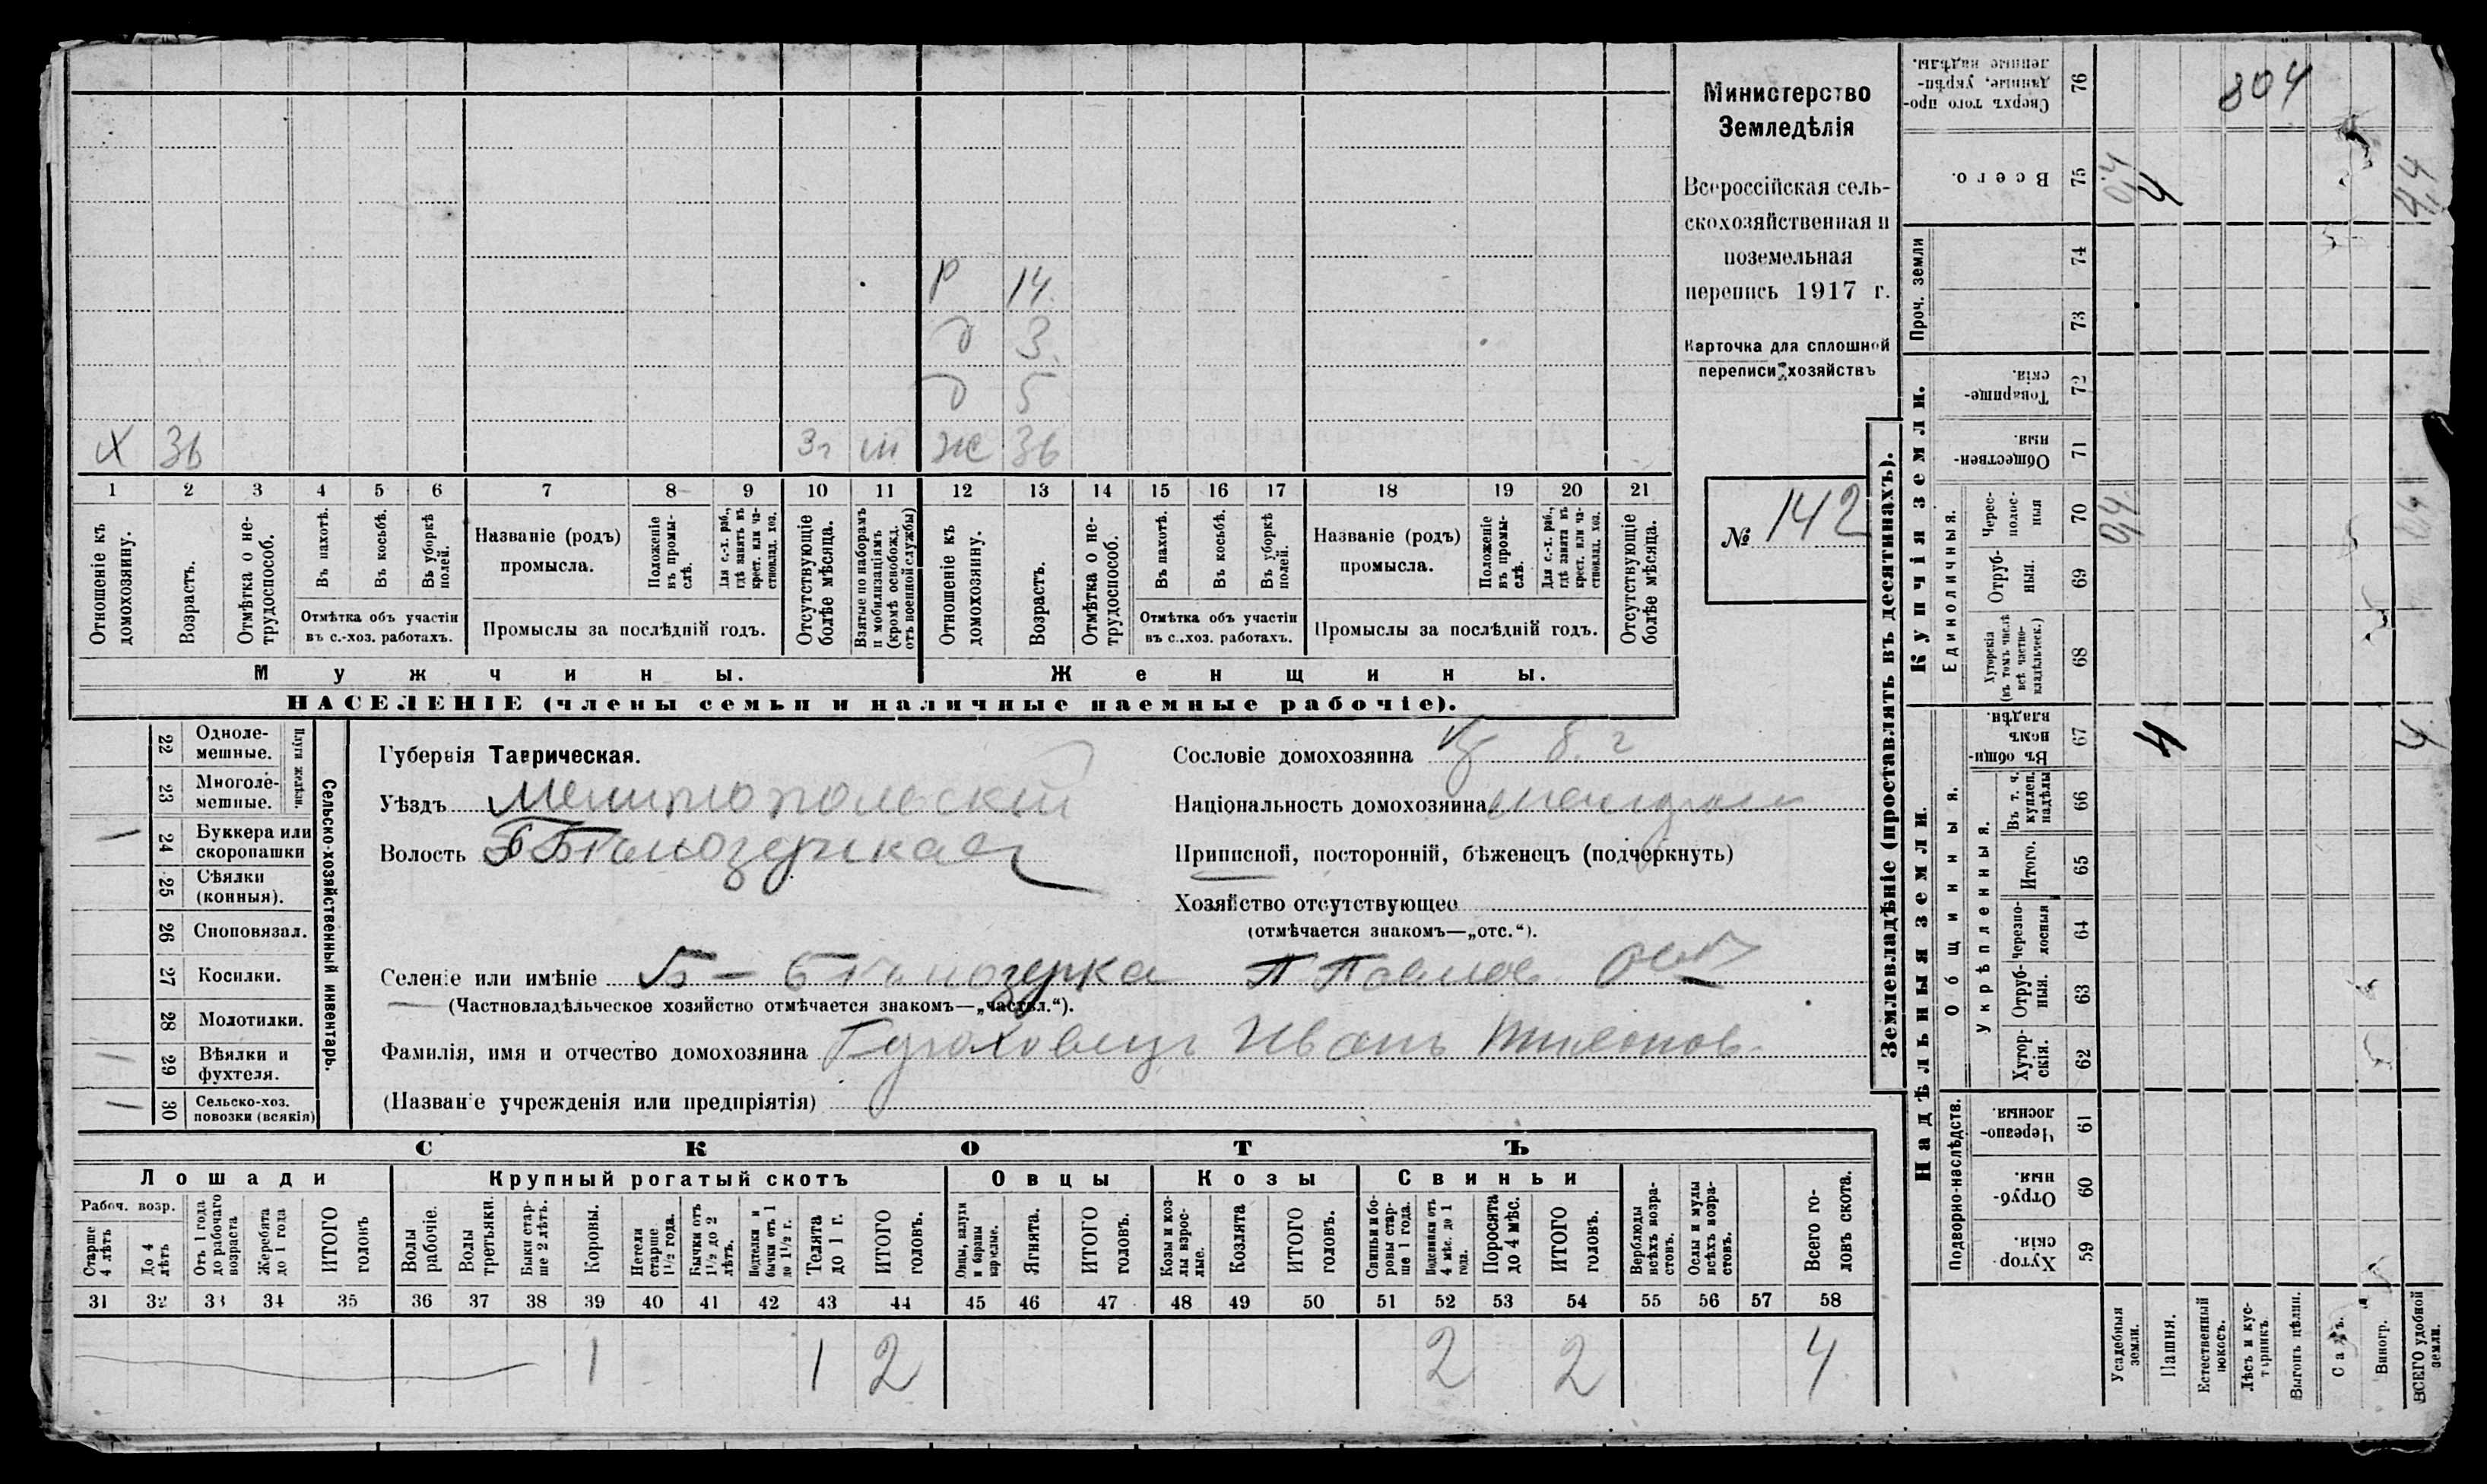 Министерство
Земледѣлія
Всероссійская сель-
скохозяйственная и
поземельная
перепись 1917 г.
Карточка для сплошной
переписи хозяйствъ
№ 142
Р 14
д 3
д 5
Х 36 3г м Ж 36
1 2 3 4 5 6 7 8 9 10 11 12 13 14 15 16 17 18 19 20 21
Отношеніе къ домохозяину.
Возрастъ.
Отмѣтка о не-трудоспособ.
Въ пахотѣ.
Въ косьбѣ.
Въ уборкѣ полей.
Отмѣтка объ участіи
въ с.-хоз. работахъ.
Названіе (родъ)
промысла.
Положеніе въ промы-слѣ.
Для с.-х. раб., гдѣ занятъ въ крест. или ча-стновлад. хоз.
Промыслы за послѣдній годъ.
Отсутствующіе болѣе мѣсяца.
Взятые по наборамъ и мобилизаціямъ (кромѣ освобожд. отъ военной службы)
Отношеніе къ домохозяину.
Возрастъ.
Отмѣтка о не-трудоспособ.
Въ пахотѣ.
Въ косьбѣ.
Въ уборкѣ полей.
Отмѣтка объ участіи
въ с.-хоз. работахъ.
Названіе (родъ)
промысла.
Положеніе въ промы-слѣ.
Для с.-х. раб., гдѣ занята въ крест. или ча-стновлад. хоз.
Промыслы за послѣдній годъ.
Отсутствующіе болѣе мѣсяца.
Мужчины. Женщины.
НАСЕЛЕНІЕ (члены семьи и наличные наемные рабочіе).
Сельско-хозяйственный инвентарь.
Плуги желѣзн.
22 Одноле-мешные.
23 Многоле-мешные.
24 Буккера или скоропашки
25 Сѣялки (конныя).
26 Сноповязал.
27 Косилки.
28 Молотилки.
29 Вѣялки и фухтеля.
30 Сельско-хоз. повозки (всякія)
Губернія Таврическая.
Уѣздъ Мелитопольскій
Волость Б Бѣлозерская
Сословіе домохозяина
Національность домохозяина
Приписной, посторонній, бѣженецъ (подчеркнуть)
Хозяйство отсутствующее
(отмѣчается знакомъ—„отс.“).
Селеніе или имѣніе Б - Бѣлозерка П Павлов
(Частновладѣльческое хозяйство отмѣчается знакомъ—„частвл.“).
Фамилія, имя и отчество домохозяина Иванъ
(Названіе учрежденія или предпріятія)
СКОТЪ
Лошади Крупный рогатый скотъ Овцы Козы Свиньи
Рабоч. возр.
Старше 4 лѣтъ
До 4 лѣтъ
Отъ 1 года до рабочаго возраста
Жеребята до 1 года
ИТОГО головъ
Волы рабочіе.
Волы третьяки.
Быки стар-ше 2 лѣтъ.
Коровы.
Нетели старше 1½ года.
Бычки отъ 1½ до 2 лѣтъ.
Подтелки и бычки отъ 1 до 1½ г.
Телята до 1 г.
ИТОГО головъ.
Овцы, валухи и бараны взрослые.
Ягнята.
ИТОГО головъ.
Козы и коз-лы взрос-лые.
Козлята
ИТОГО головъ.
Свиньи и бо-ровы стар-ше 1 года.
Подсвинки отъ 4 мѣс. до 1 года.
Поросята до 4 мѣс.
ИТОГО головъ.
Верблюды всѣхъ возра-стовъ.
Ослы и мулы всѣхъ возра-стовъ.
Всего го-ловъ скота.
31 32 33 34 35 36 37 38 39 40 41 42 43 44 45 46 47 48 49 50 51 52 53 54 55 56 57 58
1 1 2 2 2 4
Землевладѣніе (проставлять въ десятинахъ).
804
76 Сверхъ того про-данные, укрѣп-ленные надѣлы.
75 Всего. 0,4 4 4,4
Проч. земли
74
73
Купчія земли.
72 Товарище-скія.
71 Обществен-ныя
Единоличныя.
70 Черес-полос-ныя 0,4 0,4
69 Отруб-ныя.
68 Хуторскія (въ томъ числѣ всѣ частно-владѣльческ.)
Надѣльныя земли.
Общинныя.
67 Въ общи-номъ владѣн. 4 4
Укрѣпленныя.
66 Въ т. ч. куплен. надѣлы
65 Итого.
64 Черезпо-лосныя
63 Отруб-ныя.
62 Хутор-скія.
Подворно-наслѣдств.
61 Черезпо-лосныя.
60 Отруб-ныя.
59 Хутор-скія.
Усадебныя земли.
Пашня.
Естественный покосъ.
Лѣсъ и кус-тарникъ.
Выгонъ цѣлин.
Садъ.
Виногр.
ВСЕГО удобной земли.